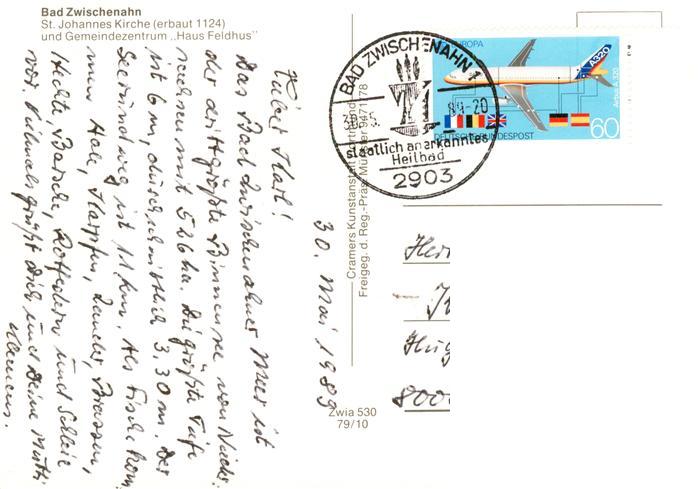 Bad Zwischenahn
St. Johannes Kirche (erbaut 1124)
und Gemeindezentrum „Haus Feldhus"
30. Mai 1989
Lieber Karl!
Das Bad Zwischenahner Meer ist
der drittgrößte Binnensee von Nieder-
sachsen mit 526 ha. Die größte Tiefe
ist 6 m, durchschnittlich 3,30 m. Der
Seerundweg ist 11 km. Als Fische kom-
men Aale, Karpfen, Zander, Brassen,
Hechte, Barsche, Rotfedern und Schleie
vor. Nochmals grüßt Dich und Deine Mutti
Clemens.
Cramers Kunstanstalt
Freigeg. d. Reg.-Präs. Münster
Zwia 530
79/10
BAD ZWISCHENAHN 1
89-20
staatlich anerkanntes
Heilbad
2903
EUROPA
A320
Airbus A320
60
DEUTSCHE BUNDESPOST
Herr
800